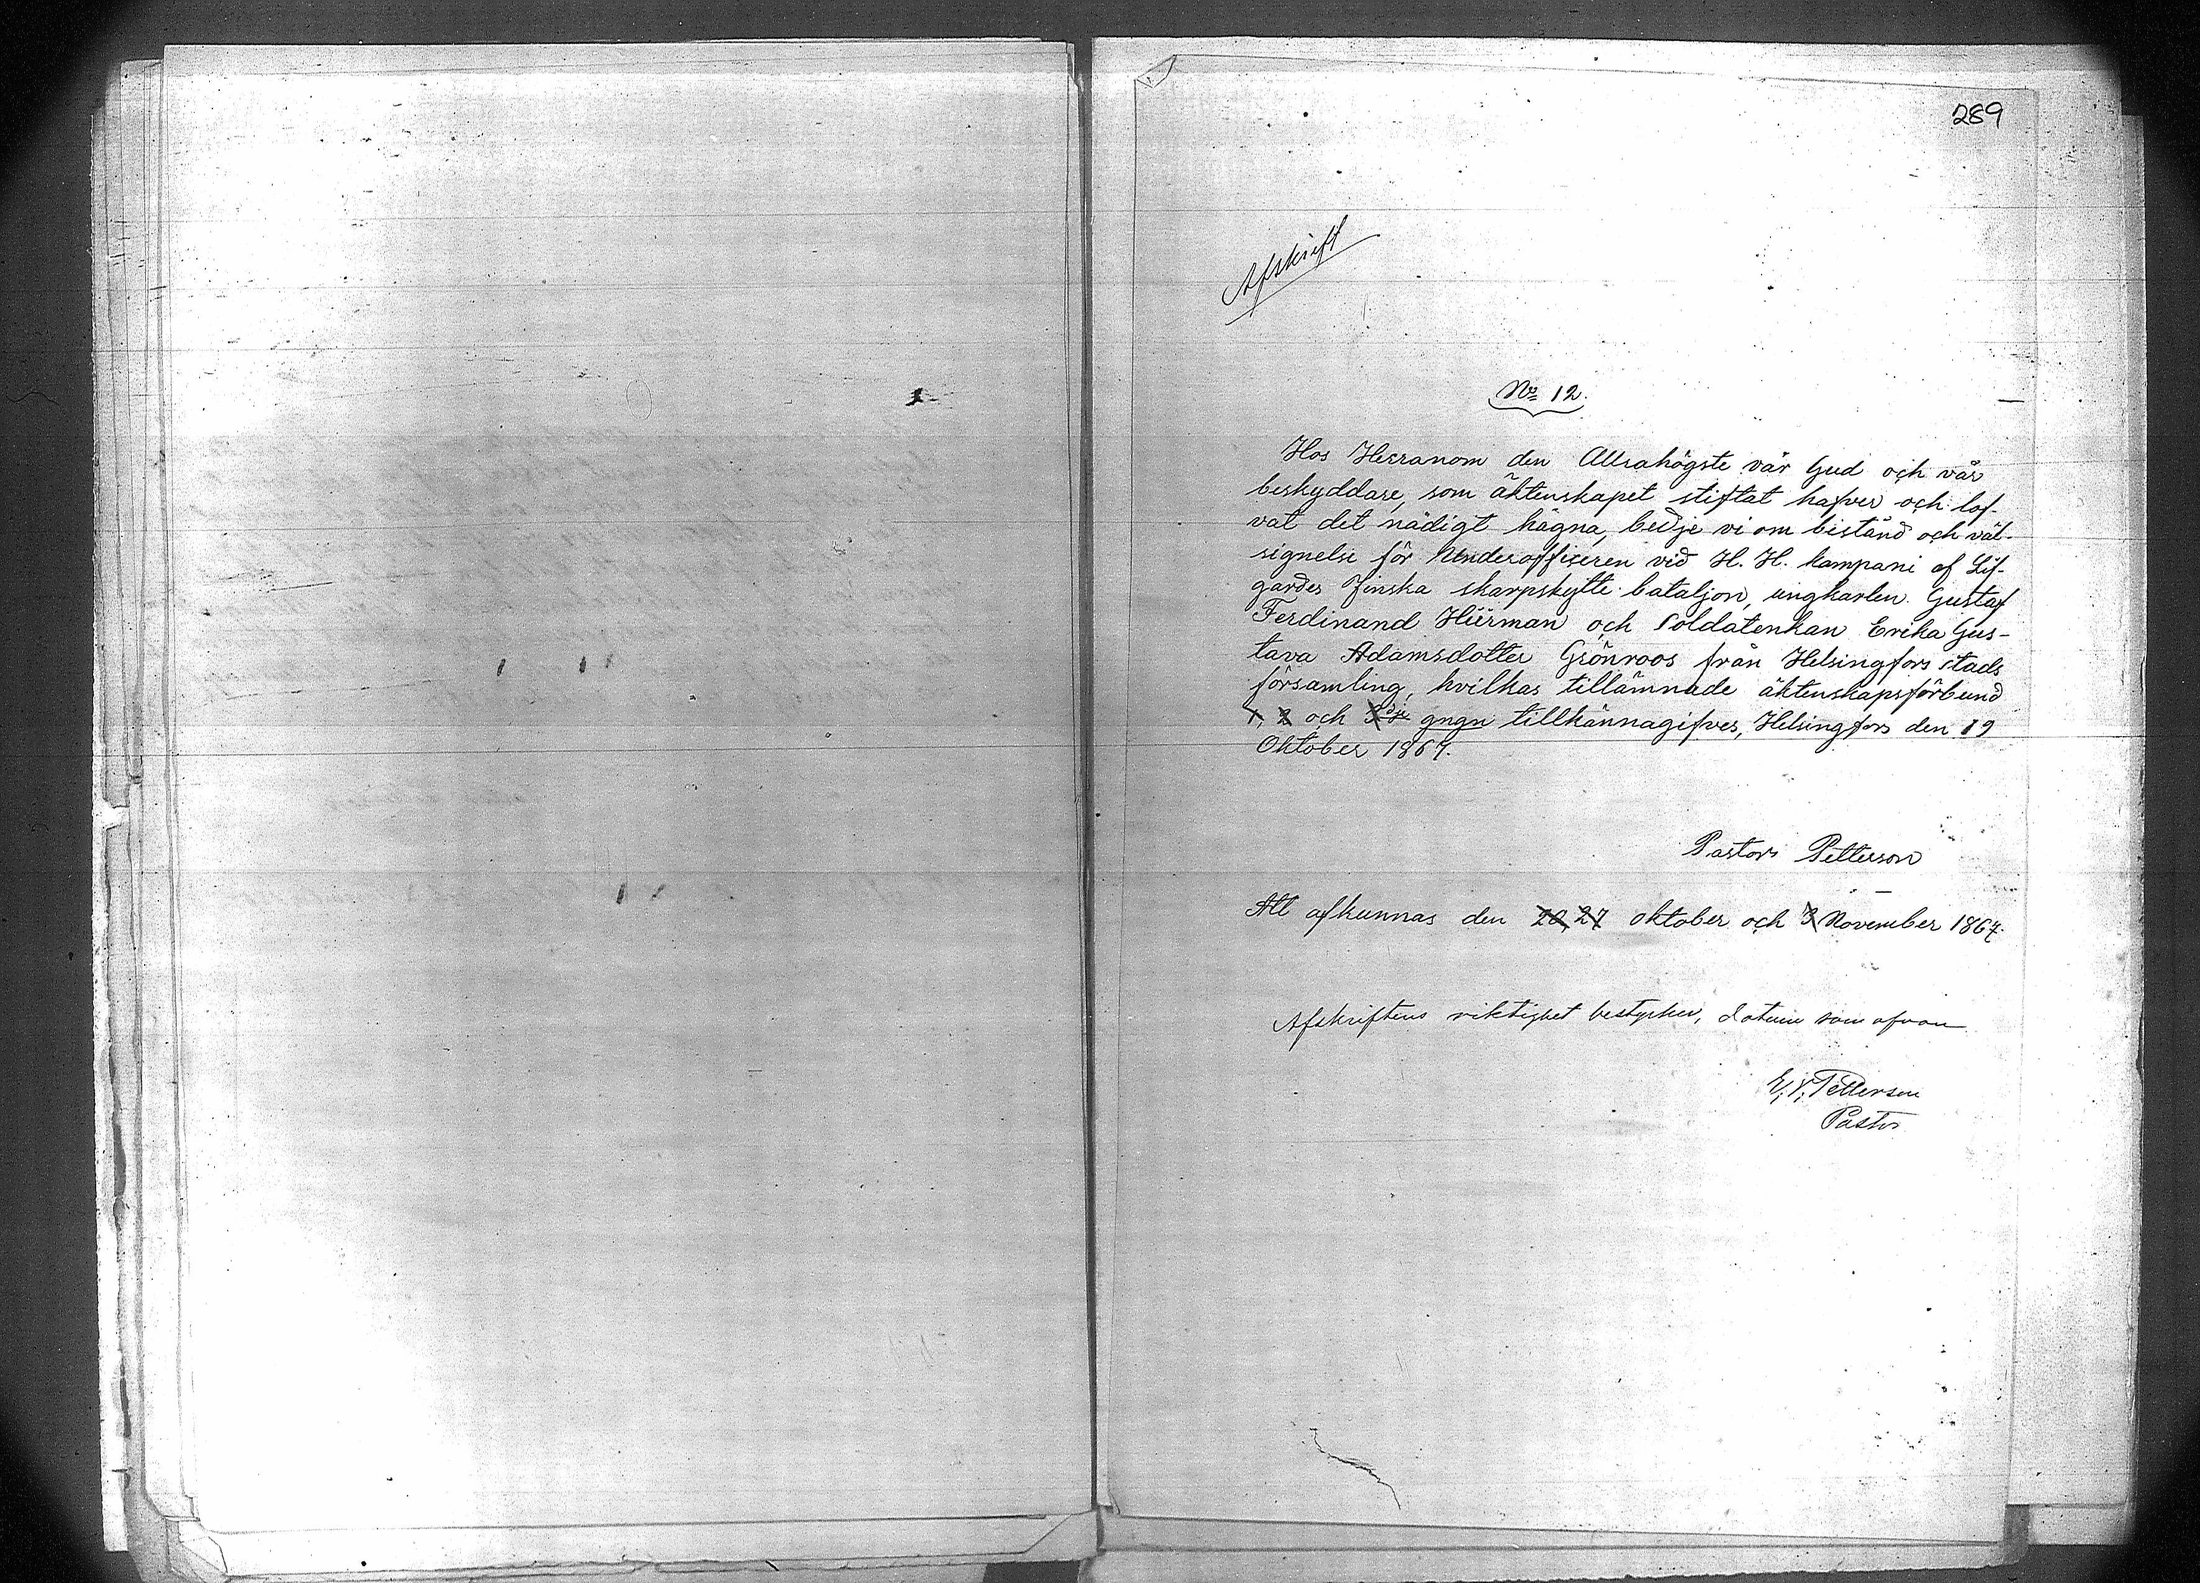 289
Afskrift
No 12.
Hos Herranom den Allrahögste vår Gud och vår
beskyddare, som äktenskapet stiftat hafver och lof-
vat det nådigt hägna, bedje vi om bistånd och väl-
signelse för Underofficeren vid H. H. kompani af Lif-
gardes Finska skarpskytte bataljon, ungkarlen Gustaf
Ferdinand och Soldatenkan Erika Gus-
tava Adamsdotter Grönroos från Helsingfors stads
församling, hvilkas tillämnade äktenskapsförbund
1, 2 och 3dje gngn tillkännagifves, Helsingfors den 19
Oktober 1867.
Pastors Petterson
Att afkunnas den 20, 27 oktober och 3 November 1867.
Afskriftens riktighet bestyrker, datum som ofvan
Petterson
Pastor